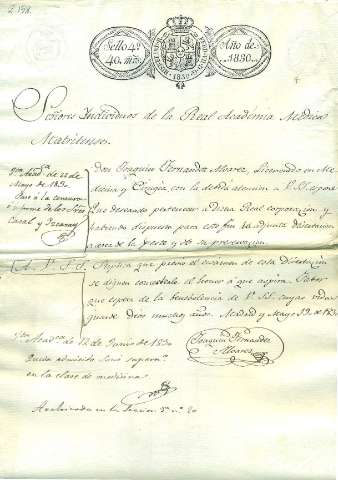 Sello 4º
40. mrs.
HISPANIARUM
1830
Año de
1830.
Señores Individuos de la Real Académia Médica
Matritense.
Don Joaquin Fernandez Alvarez, Licenciado en Me-
dicina y Cirugia con la debida atencion a V.SS. expone
Que deseando pertenecer á Dicha Real corporacion y
habiendo dispuesto para este fin la adjunta Disertacion
acerca de la peste y de su preservacion.
A V. SS. Suplica que previo el exámen de esta Disertacion
se dignen concederle el honor á que aspira. Favor
que espera de la benebolencia de V. SS. cuyas vidas
guarde Dios muchos años. Madrid y Mayo 19 de 1830
Joaquin Fernandez
Alvarez
Mayo de 1830.
Pase á la censura
é informe de los Sres.
Casal y
12 de Junio de 1830
Queda admitido socio
en la clase de medicina.
Archivada en la